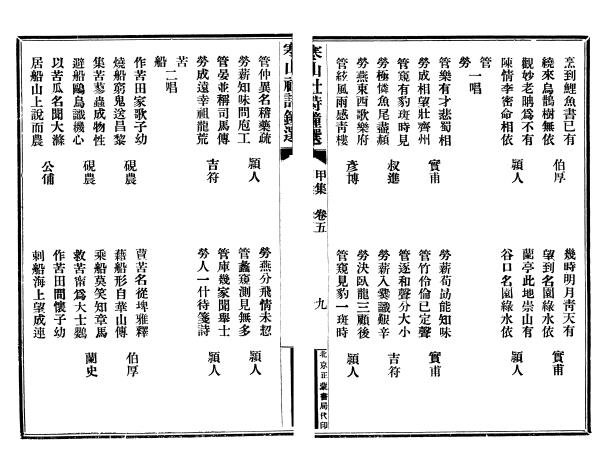 烹到鯉魚書已有
繞來烏鵲樹無依 伯厚
幾時明月青天有
望到名園綠水依 實甫
觀妙老聃為不有
陳情李密命相依 穎人
蘭亭此地崇山有
谷口名園綠水依 穎人
管
勞 一唱
管樂有才悲蜀相
勞成相望壯齊州 實甫
勞薪荀勗能知味
管竹伶倫已定聲 實甫
管窺有豹斑時見
勞極憐魚尾盡赬 叔進
管逐和聲分大小
勞薪入爨識艱辛 吉符
勞燕東西歌樂府
管絃風雨感青樓 彥博
勞決臥龍三顧後
管窺見豹一斑時 穎人
寒山社詩鐘選 甲集 卷五 九
北京正蒙書局代印
寒山社詩鐘選
管仲異名稽藥疏
勞薪知味問庖工 穎人
勞燕分飛情未恝
管蠡窺測見無多 穎人
管晏並稱司馬傳
勞成遠幸祖龍荒 吉符
管庫幾家聞舉士
勞人一什待箋詩 穎人
苦
船 二唱
作苦田家歌子幼
燒船窮鬼送昌黎 硯農
蕒苦名從埤雅釋
藉船形自華山傳 伯厚
集苦蓼蟲成物性
避船鷗鳥識機心 硯農
乘船莫笑知章馬
救苦甯為大士鸚 蘭史
以苦瓜名聞大滌
居船山上說而農 公俌
作苦田間懷子幼
刺船海上望成連